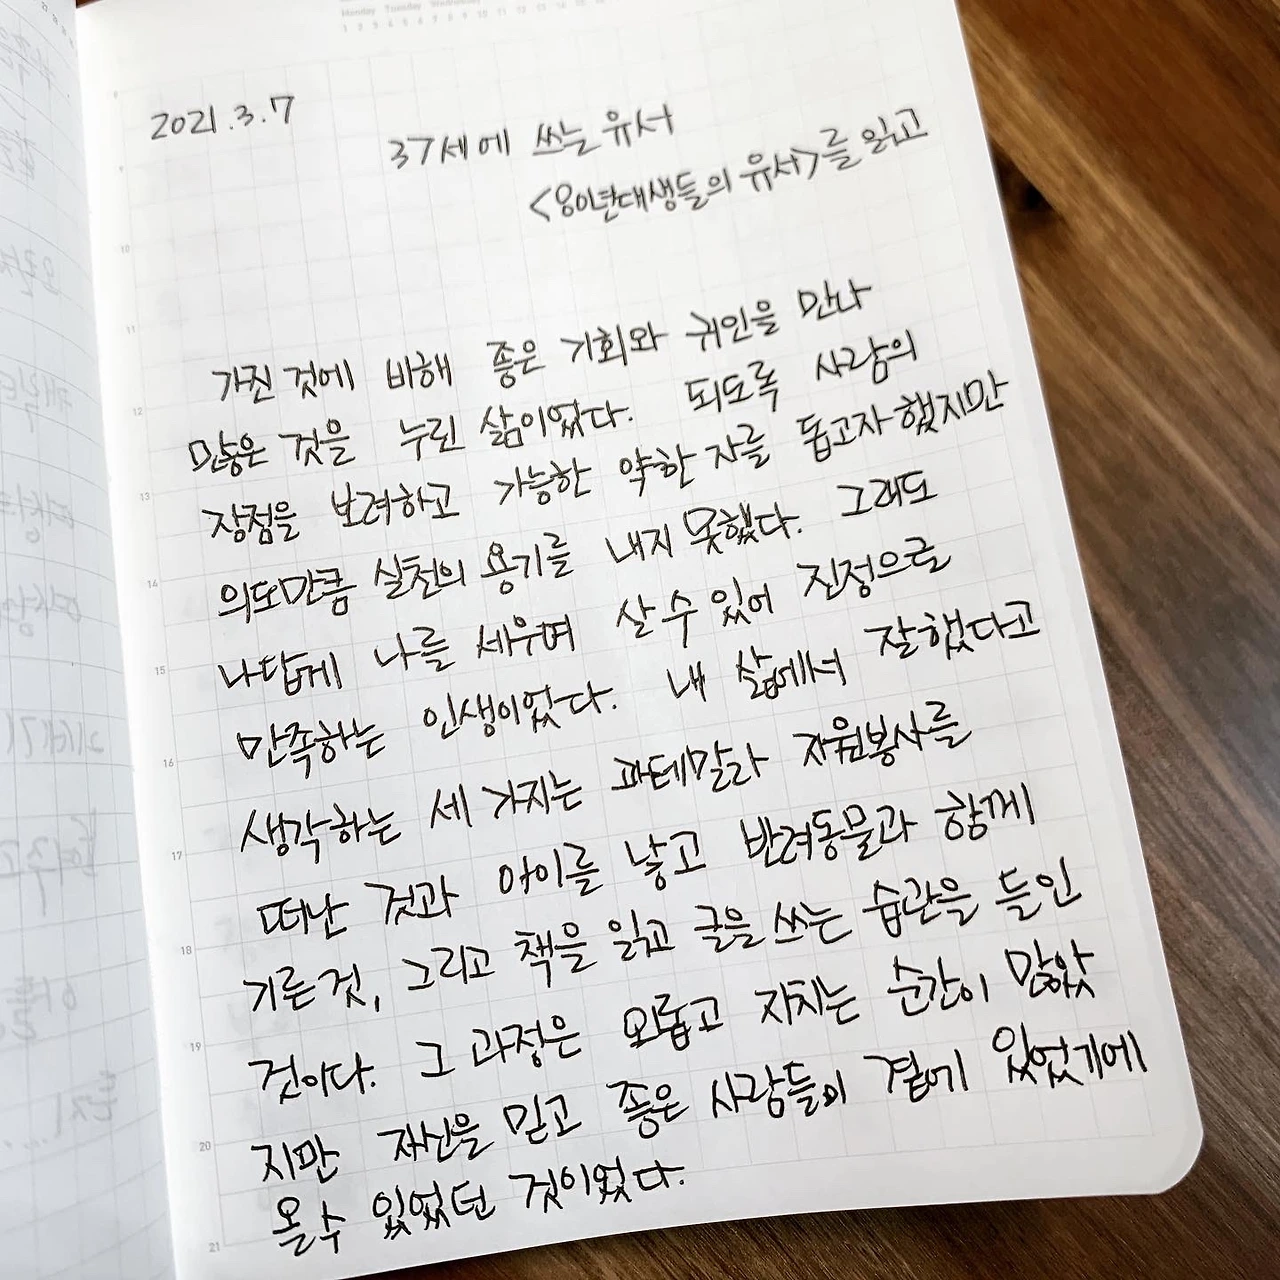 Monday Tuesday Wednesday
2021.3.7
37세에 쓰는 유서
<90년대생들의 유서>를 읽고
가진 것에 비해 좋은 기회와 귀인을 만나
많은 것을 누린 삶이었다. 되도록 사람의
장점을 보려하고 가능한 약한 자를 돕고자 했지만
의또만큼 실천의 용기를 내지 못했다. 그래도
나답게 나를 세우며 살 수 있어 진정으로
만족하는 인생이었다. 내 삶에서 잘했다고
생각하는 세 가지는 과테말라 자원봉사를
떠난 것과 아이를 낳고 반려동물과 함께
기른 것, 그리고 책을 읽고 글을 쓰는 습관을 들인
것이다. 그 과정은 외롭고 지치는 순간이 많았
지만 자신을 믿고 좋은 사람들이 곁에 있었기에
올 수 있었던 것이었다.